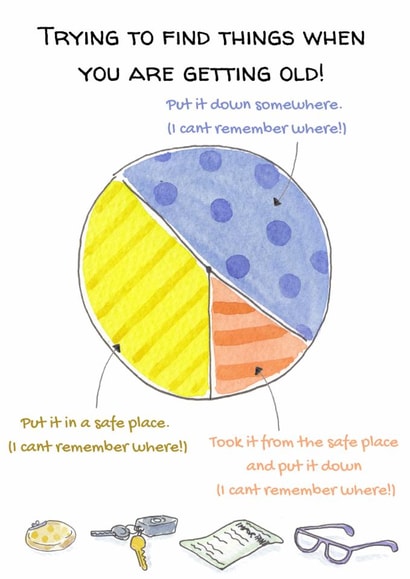 Trying to find things when
you are getting old!
Put it down somewhere.
(I cant remember where!)
Put it in a safe place.
(I cant remember where!)
Took it from the safe place
and put it down
(I cant remember where!)
IMPORTANT